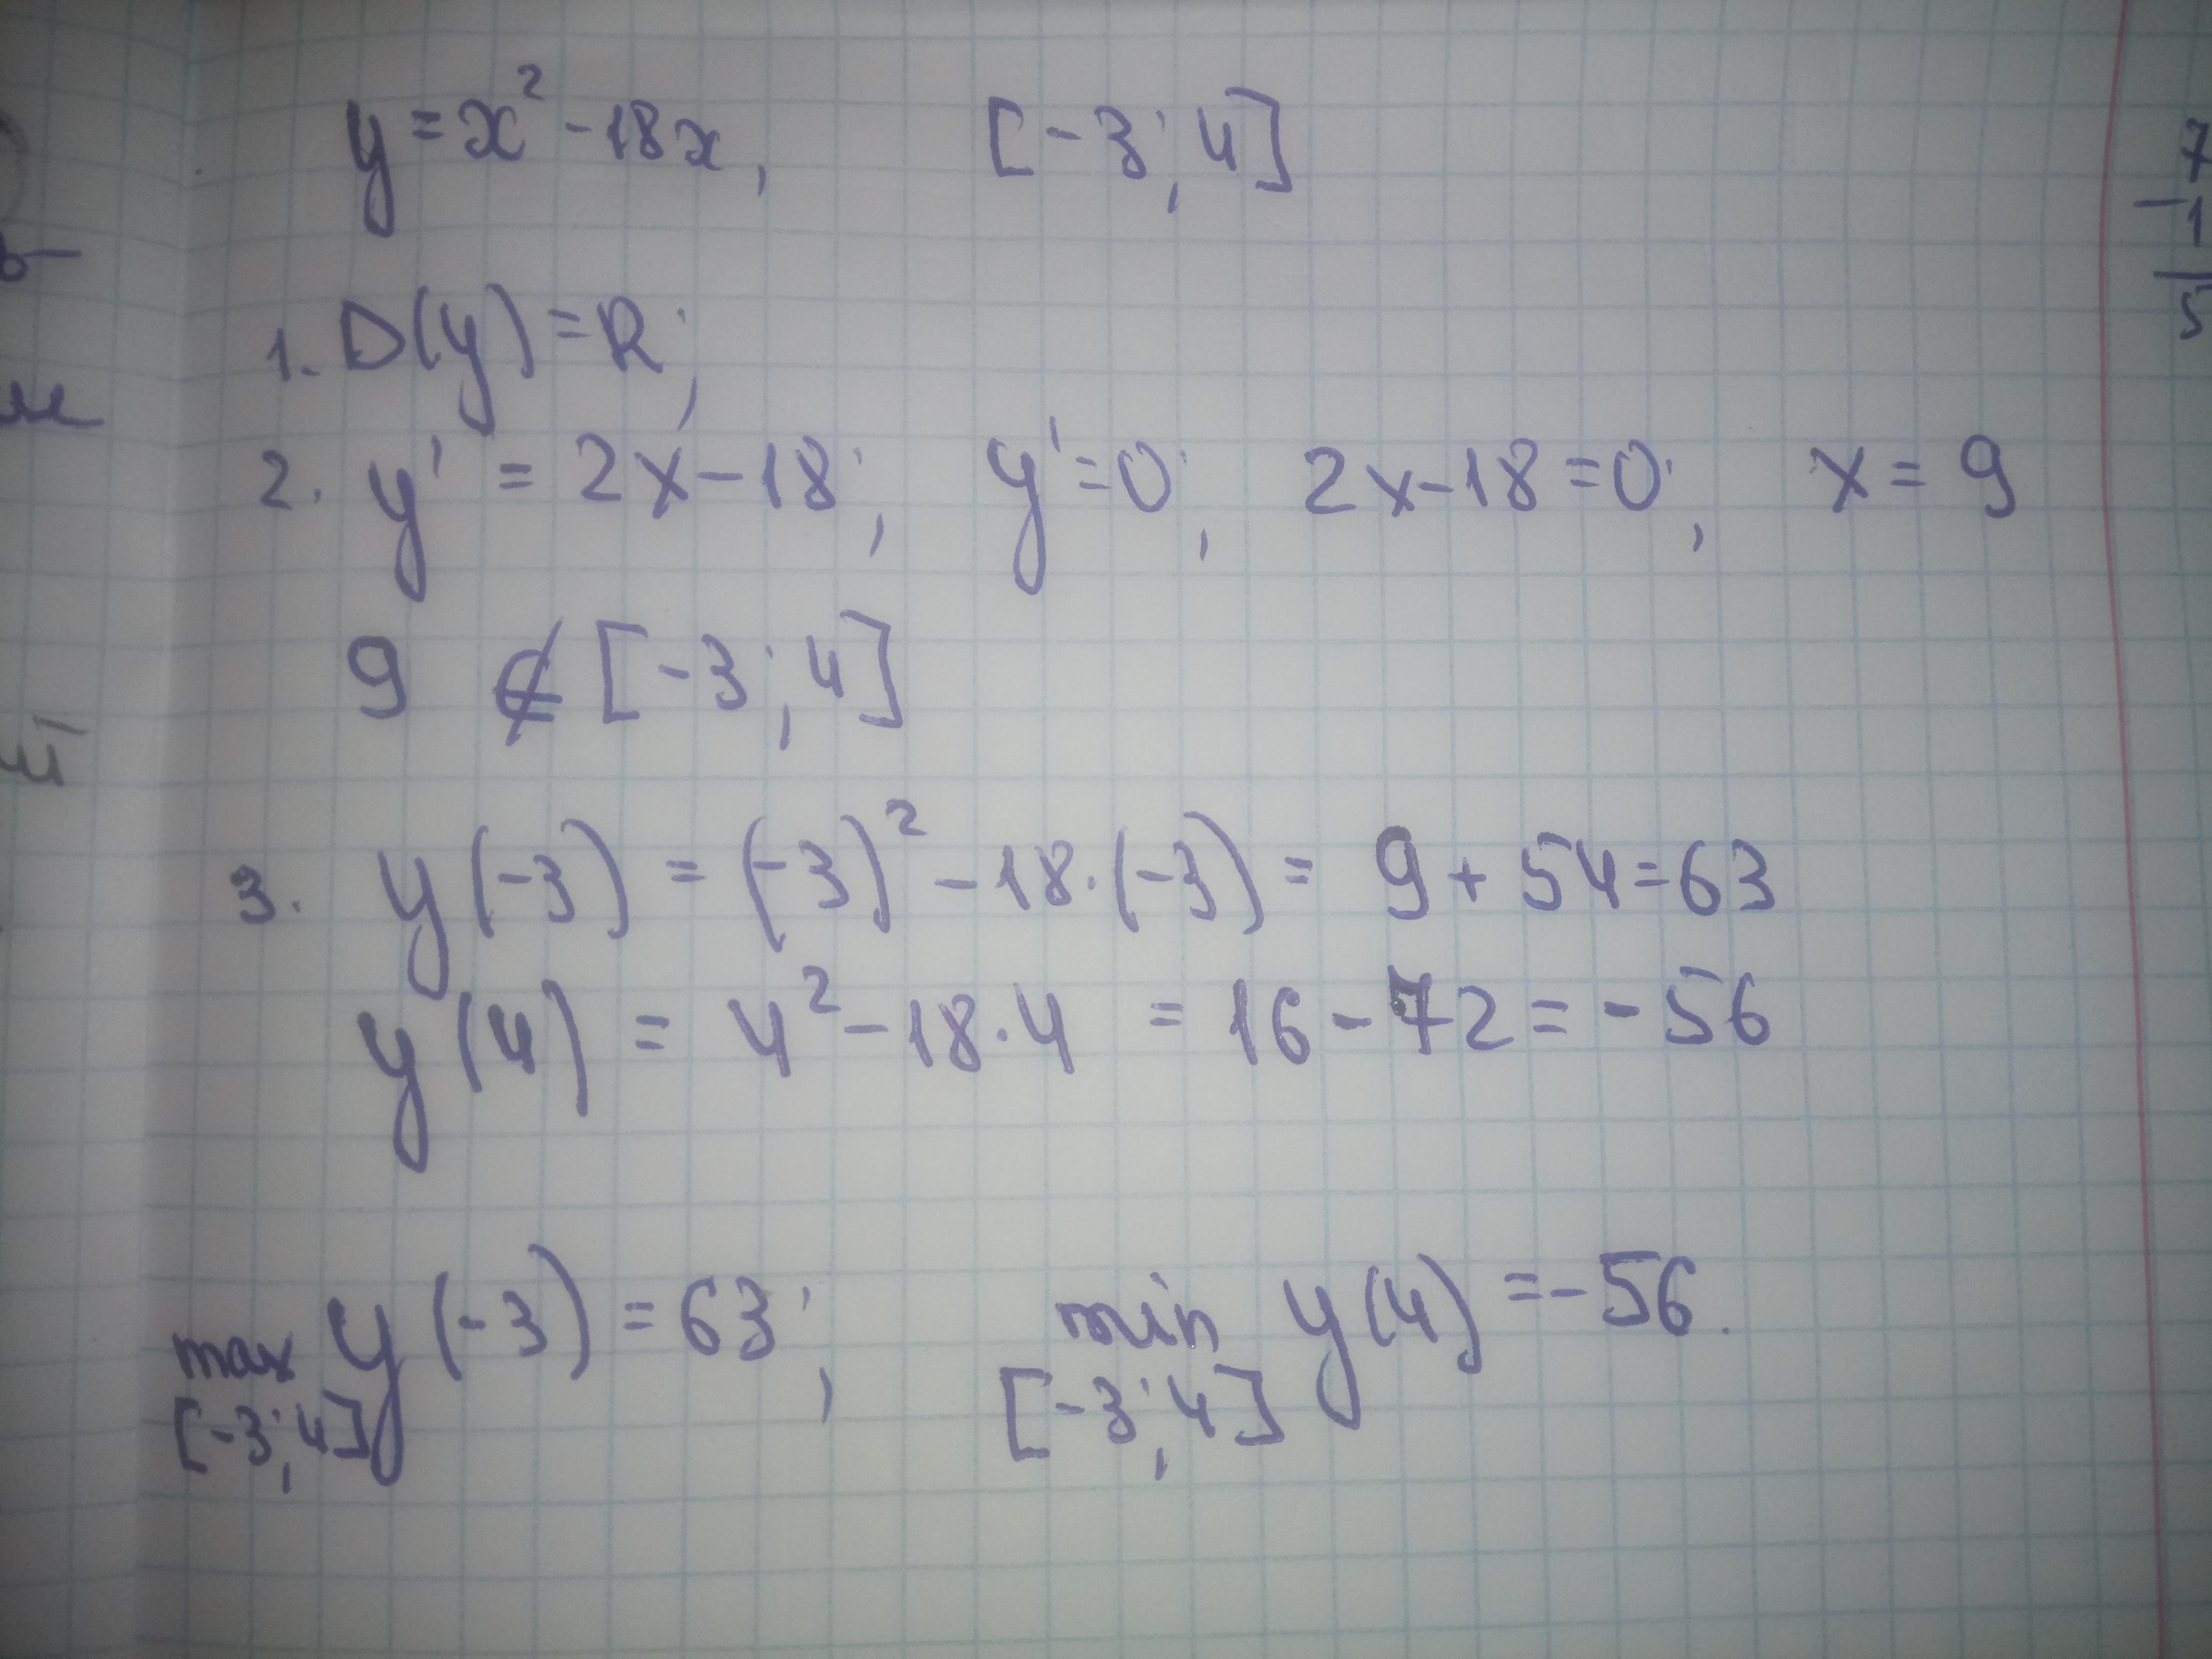 y = x² - 18x, [-3; 4]
1. D(y) = R;
2. y' = 2x - 18; y' = 0; 2x - 18 = 0; x = 9
9 ∉ [-3; 4]
3. y(-3) = (-3)² - 18·(-3) = 9 + 54 = 63
y(4) = 4² - 18·4 = 16 - 72 = -56
max y(-3) = 63; min y(4) = -56.
[-3; 4] [-3; 4]
7
- 1
5